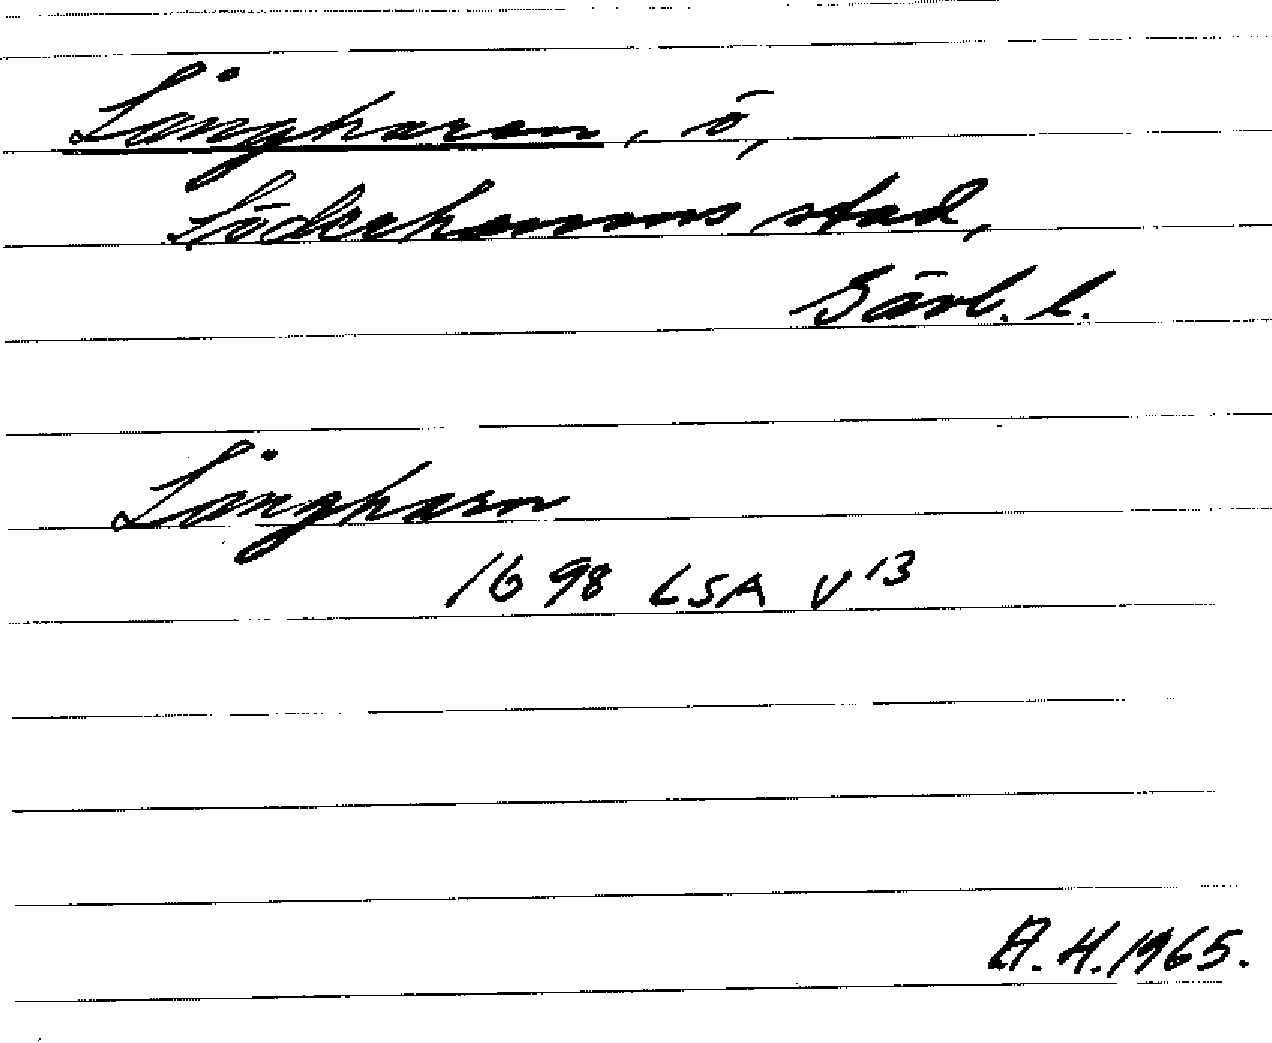 Långharen, ö,
Söderhamns stad,
Gävl. l.
Långharn
1698 LSA V 13
A.H. 1965.